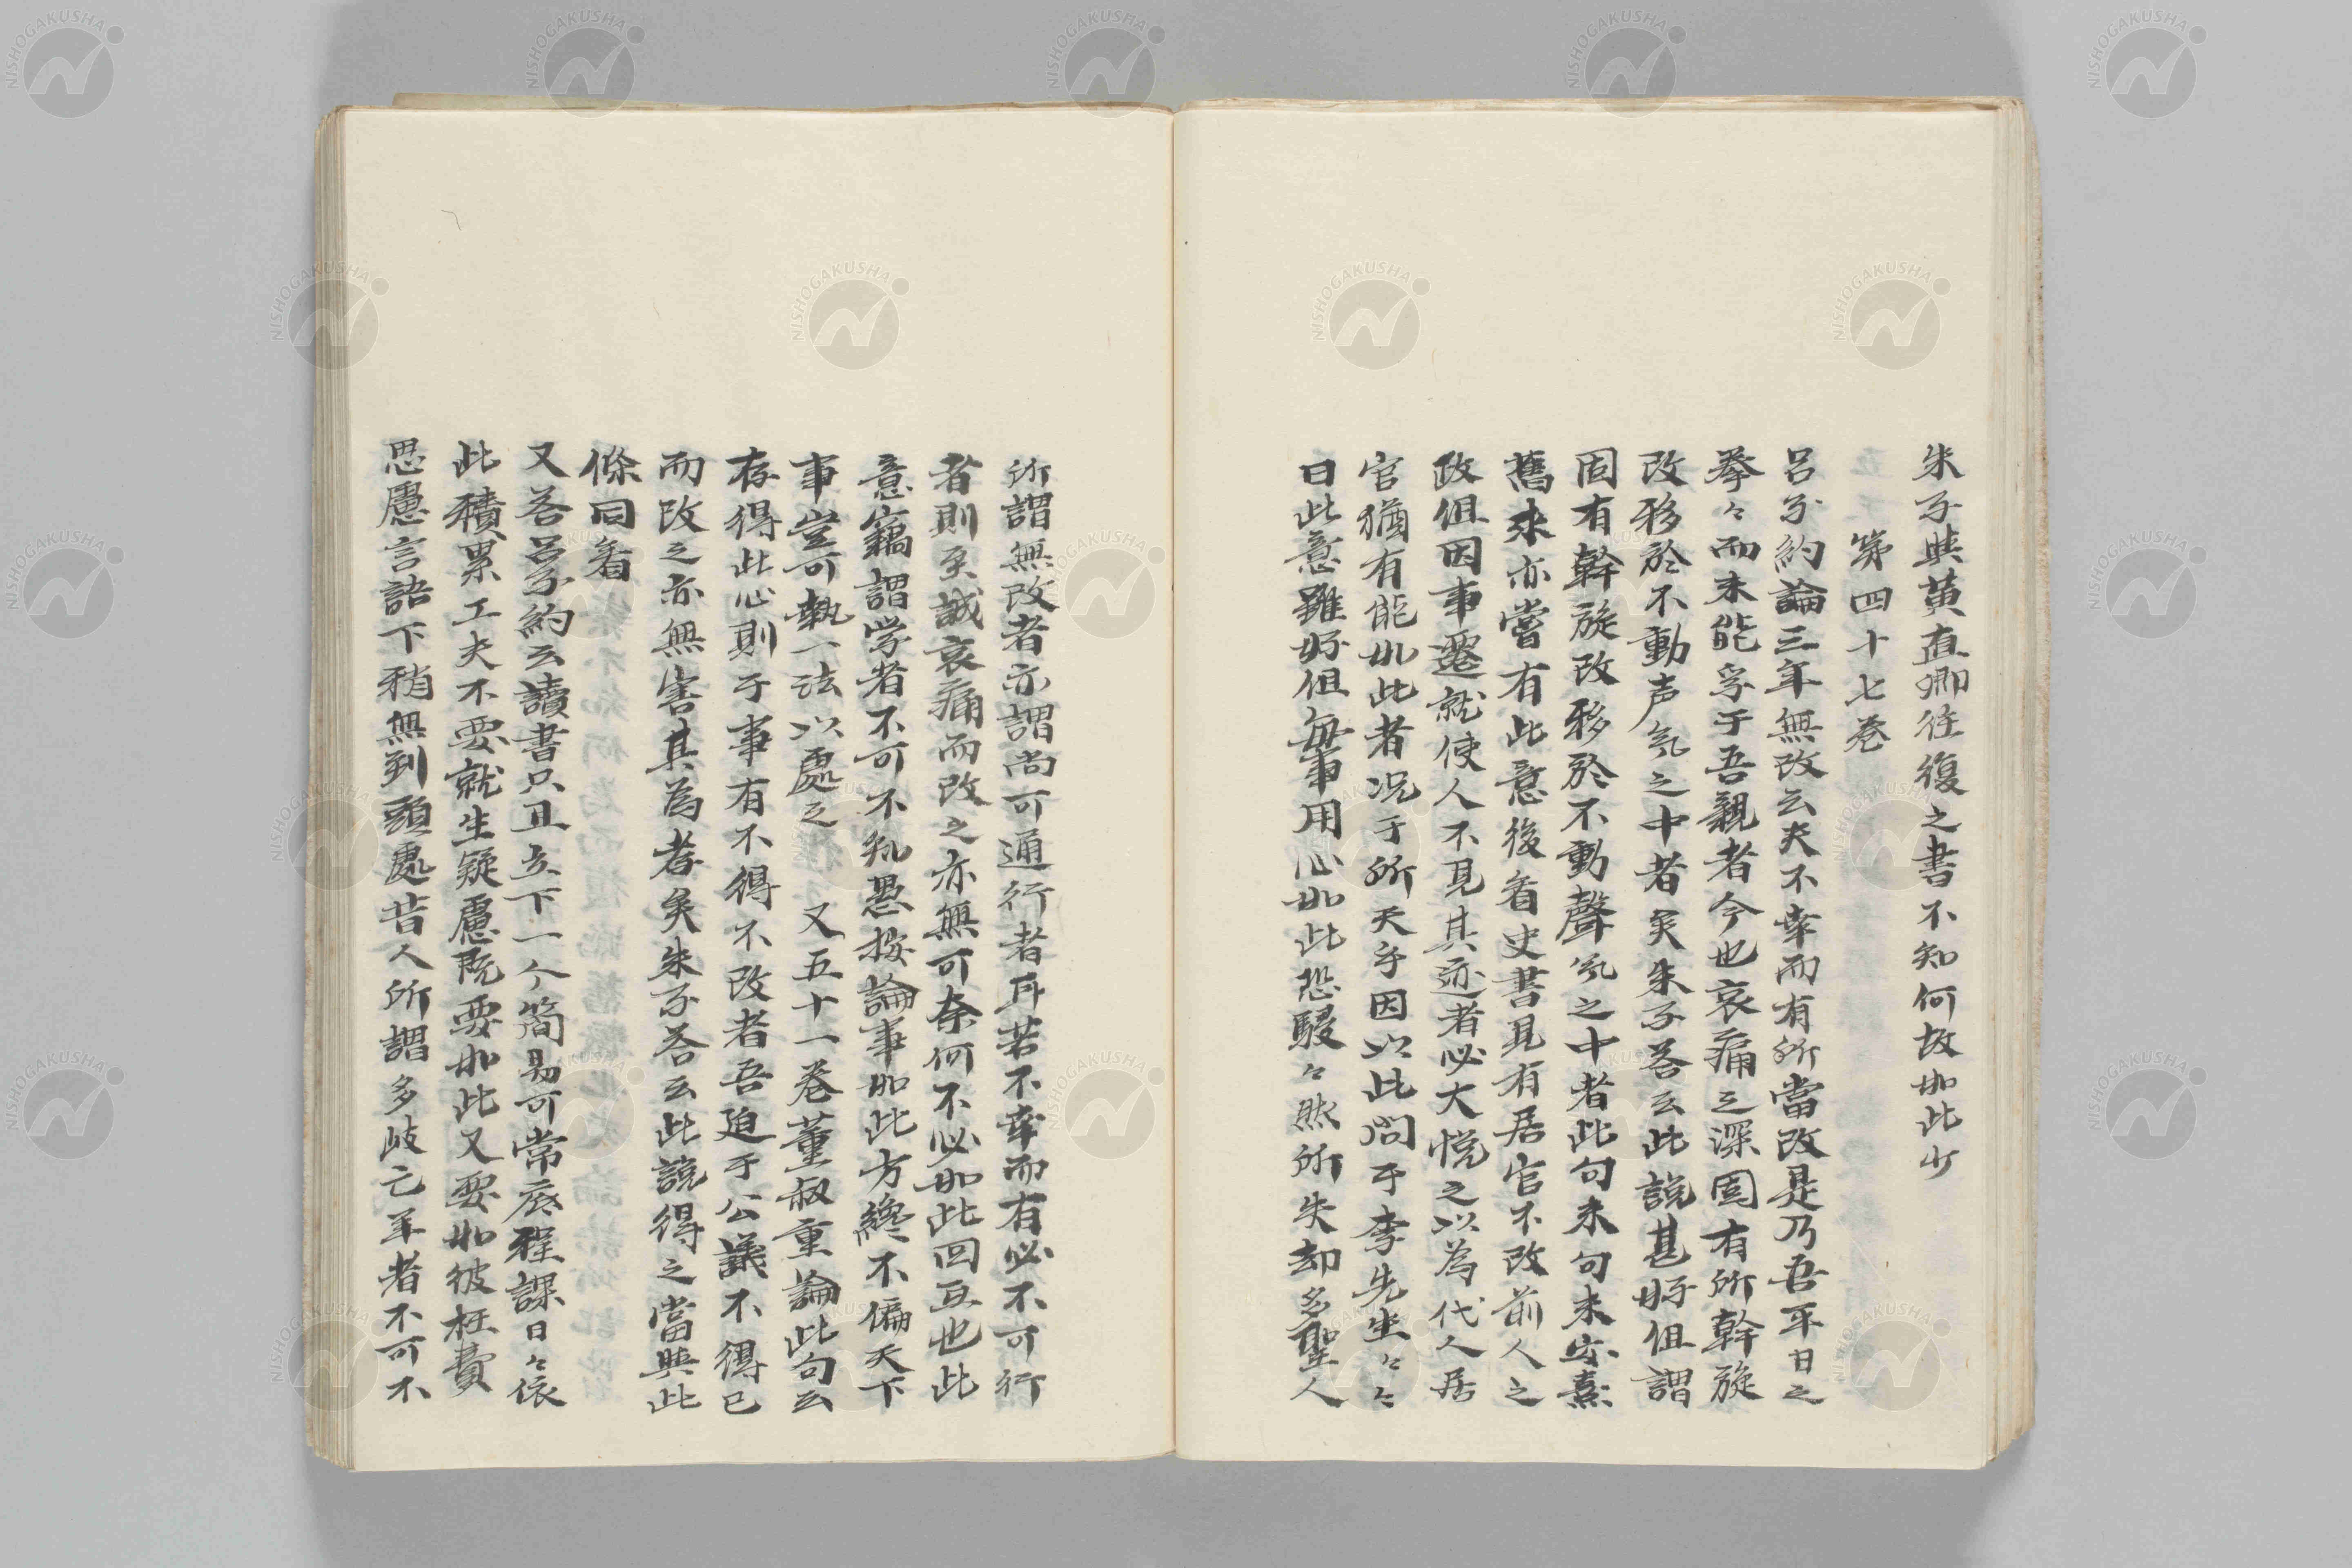 朱子與黄直卿往復之書不知何故如此少
第四十七卷
呂子約論三年無改云夫不幸而有所當改是乃吾平日之
拳々而未能孚于吾親者今也哀痛之深固有所幹旋
改移於不動声気之中者矣朱子答云此説甚好但謂
固有幹旋改移於不動聲気之中者此句未句未安熹
舊來亦嘗有此意後看史書見有居官不改前人之
政但因事遷就使人不見其迹者必大悦之以為代人居
官猶有能如此者况于所天乎因以此問于李先生々々
曰此意雖好但每事用心如此恐駸々然所失却多聖人
所謂無改者亦謂尚可通行者耳若不幸而有必不可行
者則至誠哀痛而改之亦無可奈何不必如此回互也此
意竊謂学者不可不知愚按論事如此方纔不偏天下
事豈可執一法以處之 又五十一卷董叔重論此句云
存得此心則于事有不得不改者吾迫于公議不得已
而改之亦無害其為孝矣朱子答云此説得之當與此
條同看
又答呂子約云讀書只且立下一个簡易可常底程課日々依
此積累工夫不要就生疑慮既要如此又要如彼枉費
思慮言語下稍無到頭處昔人所謂多岐亡羊者不可不